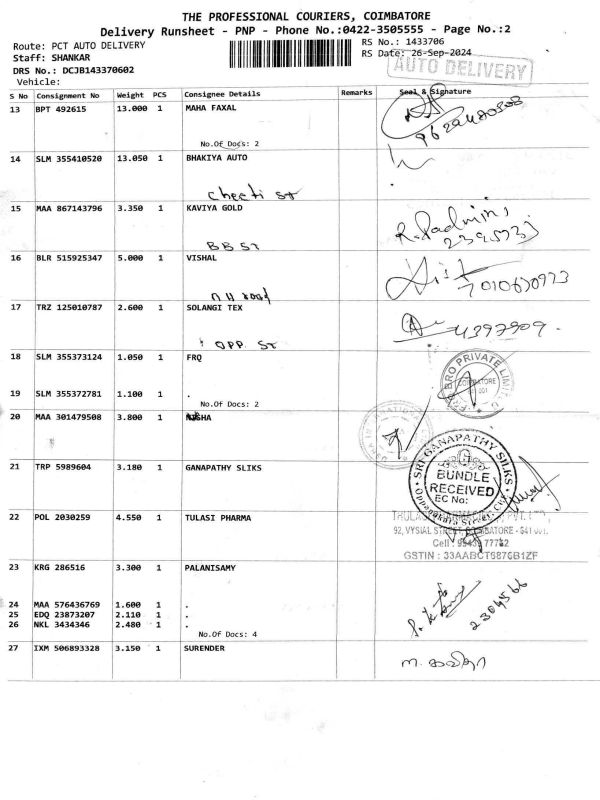 THE PROFESSIONAL COURIERS, COIMBATORE
Delivery Runsheet - PNP - Phone No.:0422-3505555 - Page No.:2
Route: PCT AUTO DELIVERY
RS No.: 1433706
Staff: SHANKAR
RS Date: 26-Sep-2024
AUTO DELIVERY
DRS No.: DCJB143370602
Vehicle:
S No Consignment No Weight PCS Consignee Details Remarks Seal & Signature
13 BPT 492615 13.000 1 MAHA FAXAL
No.Of Docs: 2
14 SLM 355410520 13.050 1 BHAKIYA AUTO
Cheeti St
15 MAA 867143796 3.350 1 KAVIYA GOLD
BB St
16 BLR 515925347 5.000 1 VISHAL
7010670973
NH road
17 TRZ 125010787 2.600 1 SOLANGI TEX
4397909.
OPP. St
18 SLM 355373124 1.050 1 FRQ
BRO PRIVATE LIMITED
COIMBATORE
19 SLM 355372781 1.100 1 .
No.Of Docs: 2
20 MAA 301479508 3.800 1
21 TRP 5989604 3.180 1 GANAPATHY SLIKS
SRI GANAPATHY SILKS
BUNDLE
RECEIVED
EC No:
22 POL 2030259 4.550 1 TULASI PHARMA
92, VYSIAL STREET, COIMBATORE - 641 001.
GSTIN : 33AABCT6876B1ZF
23 KRG 286516 3.300 1 PALANISAMY
24 MAA 576436769 1.600 1 .
25 EDQ 23873207 2.110 1 .
26 NKL 3434346 2.480 1 .
2304566
No.Of Docs: 4
27 IXM 506893328 3.150 1 SURENDER